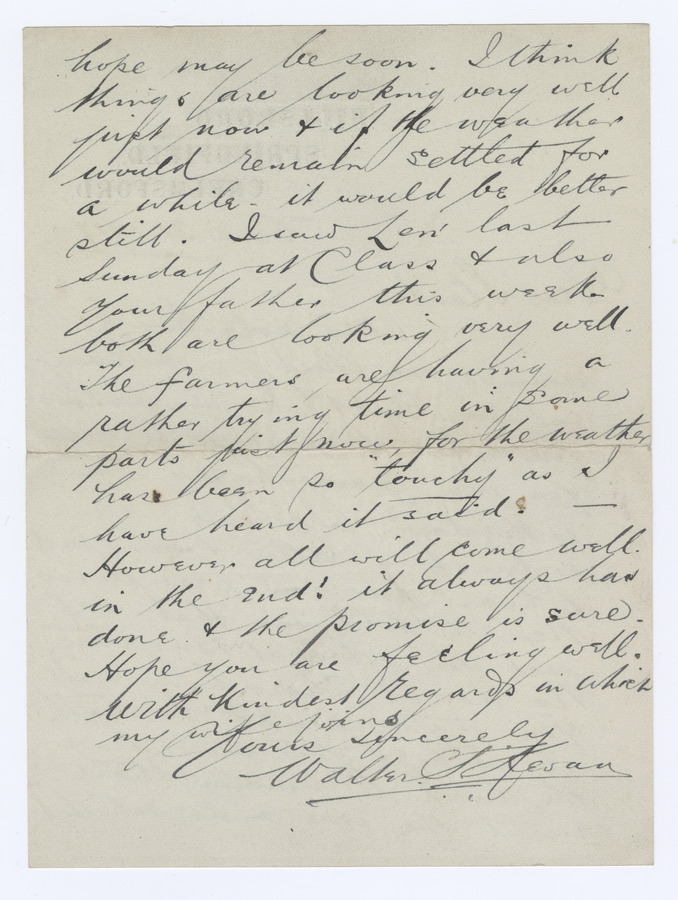 hope may be soon. I think
things are looking very well
just now & if the weather
would remain settled for
a while - it would be better
still. I saw Len last
Sunday at Class & also
your father this week
both are looking very well.
The farmers are having a
rather trying time in some
parts just now, for the weather
has been so "touchy" as I
have heard it said. —
However all will come well.
in the end! it always has
done & the promise is sure.
Hope you are feeling well.
With Kindest Regards in which
my wife joins
Yours Sincerely
Walter